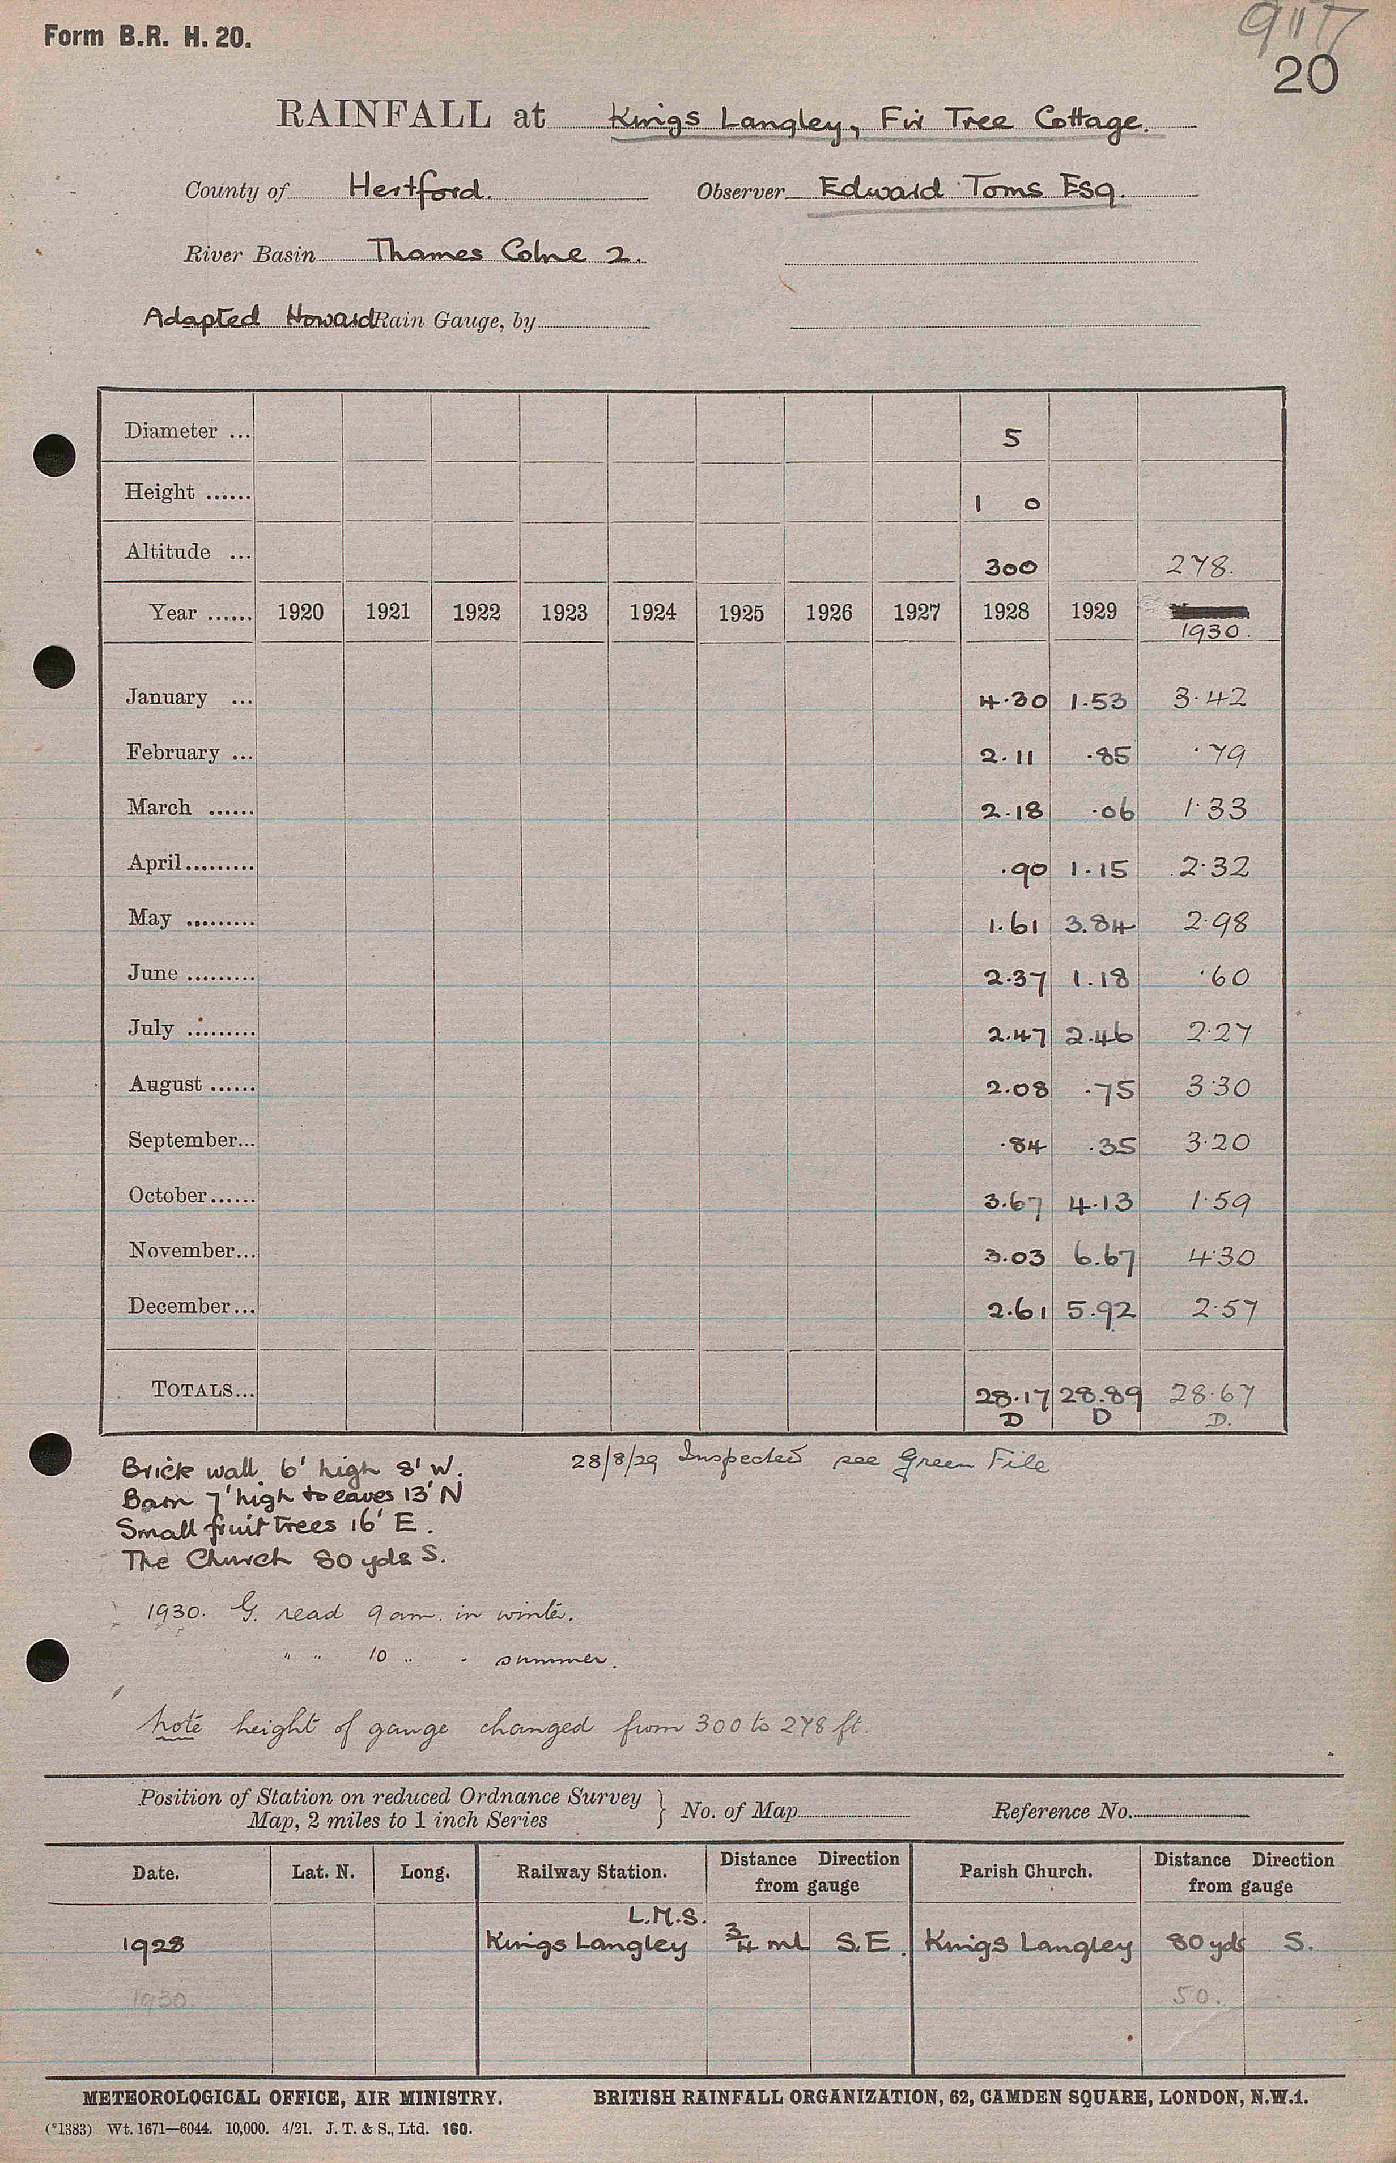 Form B.R. H. 20.
9117
20
RAINFALL at Kings Langley, Fir Tree Cottage.
County of Hertford. Observer Edward Toms Esq.
River Basin Thames Colne 2.
Adapted Howard Rain Gauge, by
Diameter ... 5
Height ...... 1 0
Altitude ... 300 278.
Year ...... 1920 1921 1922 1923 1924 1925 1926 1927 1928 1929 1930.
January ... 4.30 1.53 3.42
February ... 2.11 .85 .79
March ...... 2.18 .06 1.33
April ......... .90 1.15 2.32
May ......... 1.61 3.84 2.98
June ......... 2.37 1.18 .60
July ......... 2.47 2.46 2.27
August ...... 2.08 .75 3.30
September... .84 .35 3.20
October...... 3.67 4.13 1.59
November... 3.03 6.67 4.30
December... 2.61 5.92 2.57
TOTALS... 28.17 28.89 28.67
D D D.
Brick wall 6' high 8' W. 28/8/29 Inspected see Green File
Barn 7' high to eaves 13' N
Small fruit trees 16' E.
The Church 80 yds S.
1930. G. read 9 am. in winter.
" " 10 " " summer.
Note height of gauge changed from 300 to 278 ft.
Position of Station on reduced Ordnance Survey
Map, 2 miles to 1 inch Series } No. of Map Reference No.
Date. Lat. N. Long. Railway Station. Distance Direction from gauge Parish Church. Distance Direction from gauge
L.M.S.
1928 Kings Langley 3/4 ml S.E. Kings Langley 80 yds S.
1930. 50.
METEOROLOGICAL OFFICE, AIR MINISTRY. BRITISH RAINFALL ORGANIZATION, 62, CAMDEN SQUARE, LONDON, N.W.1.
(*1383) Wt. 1671—6044. 10,000. 4/21. J. T. & S., Ltd. 160.